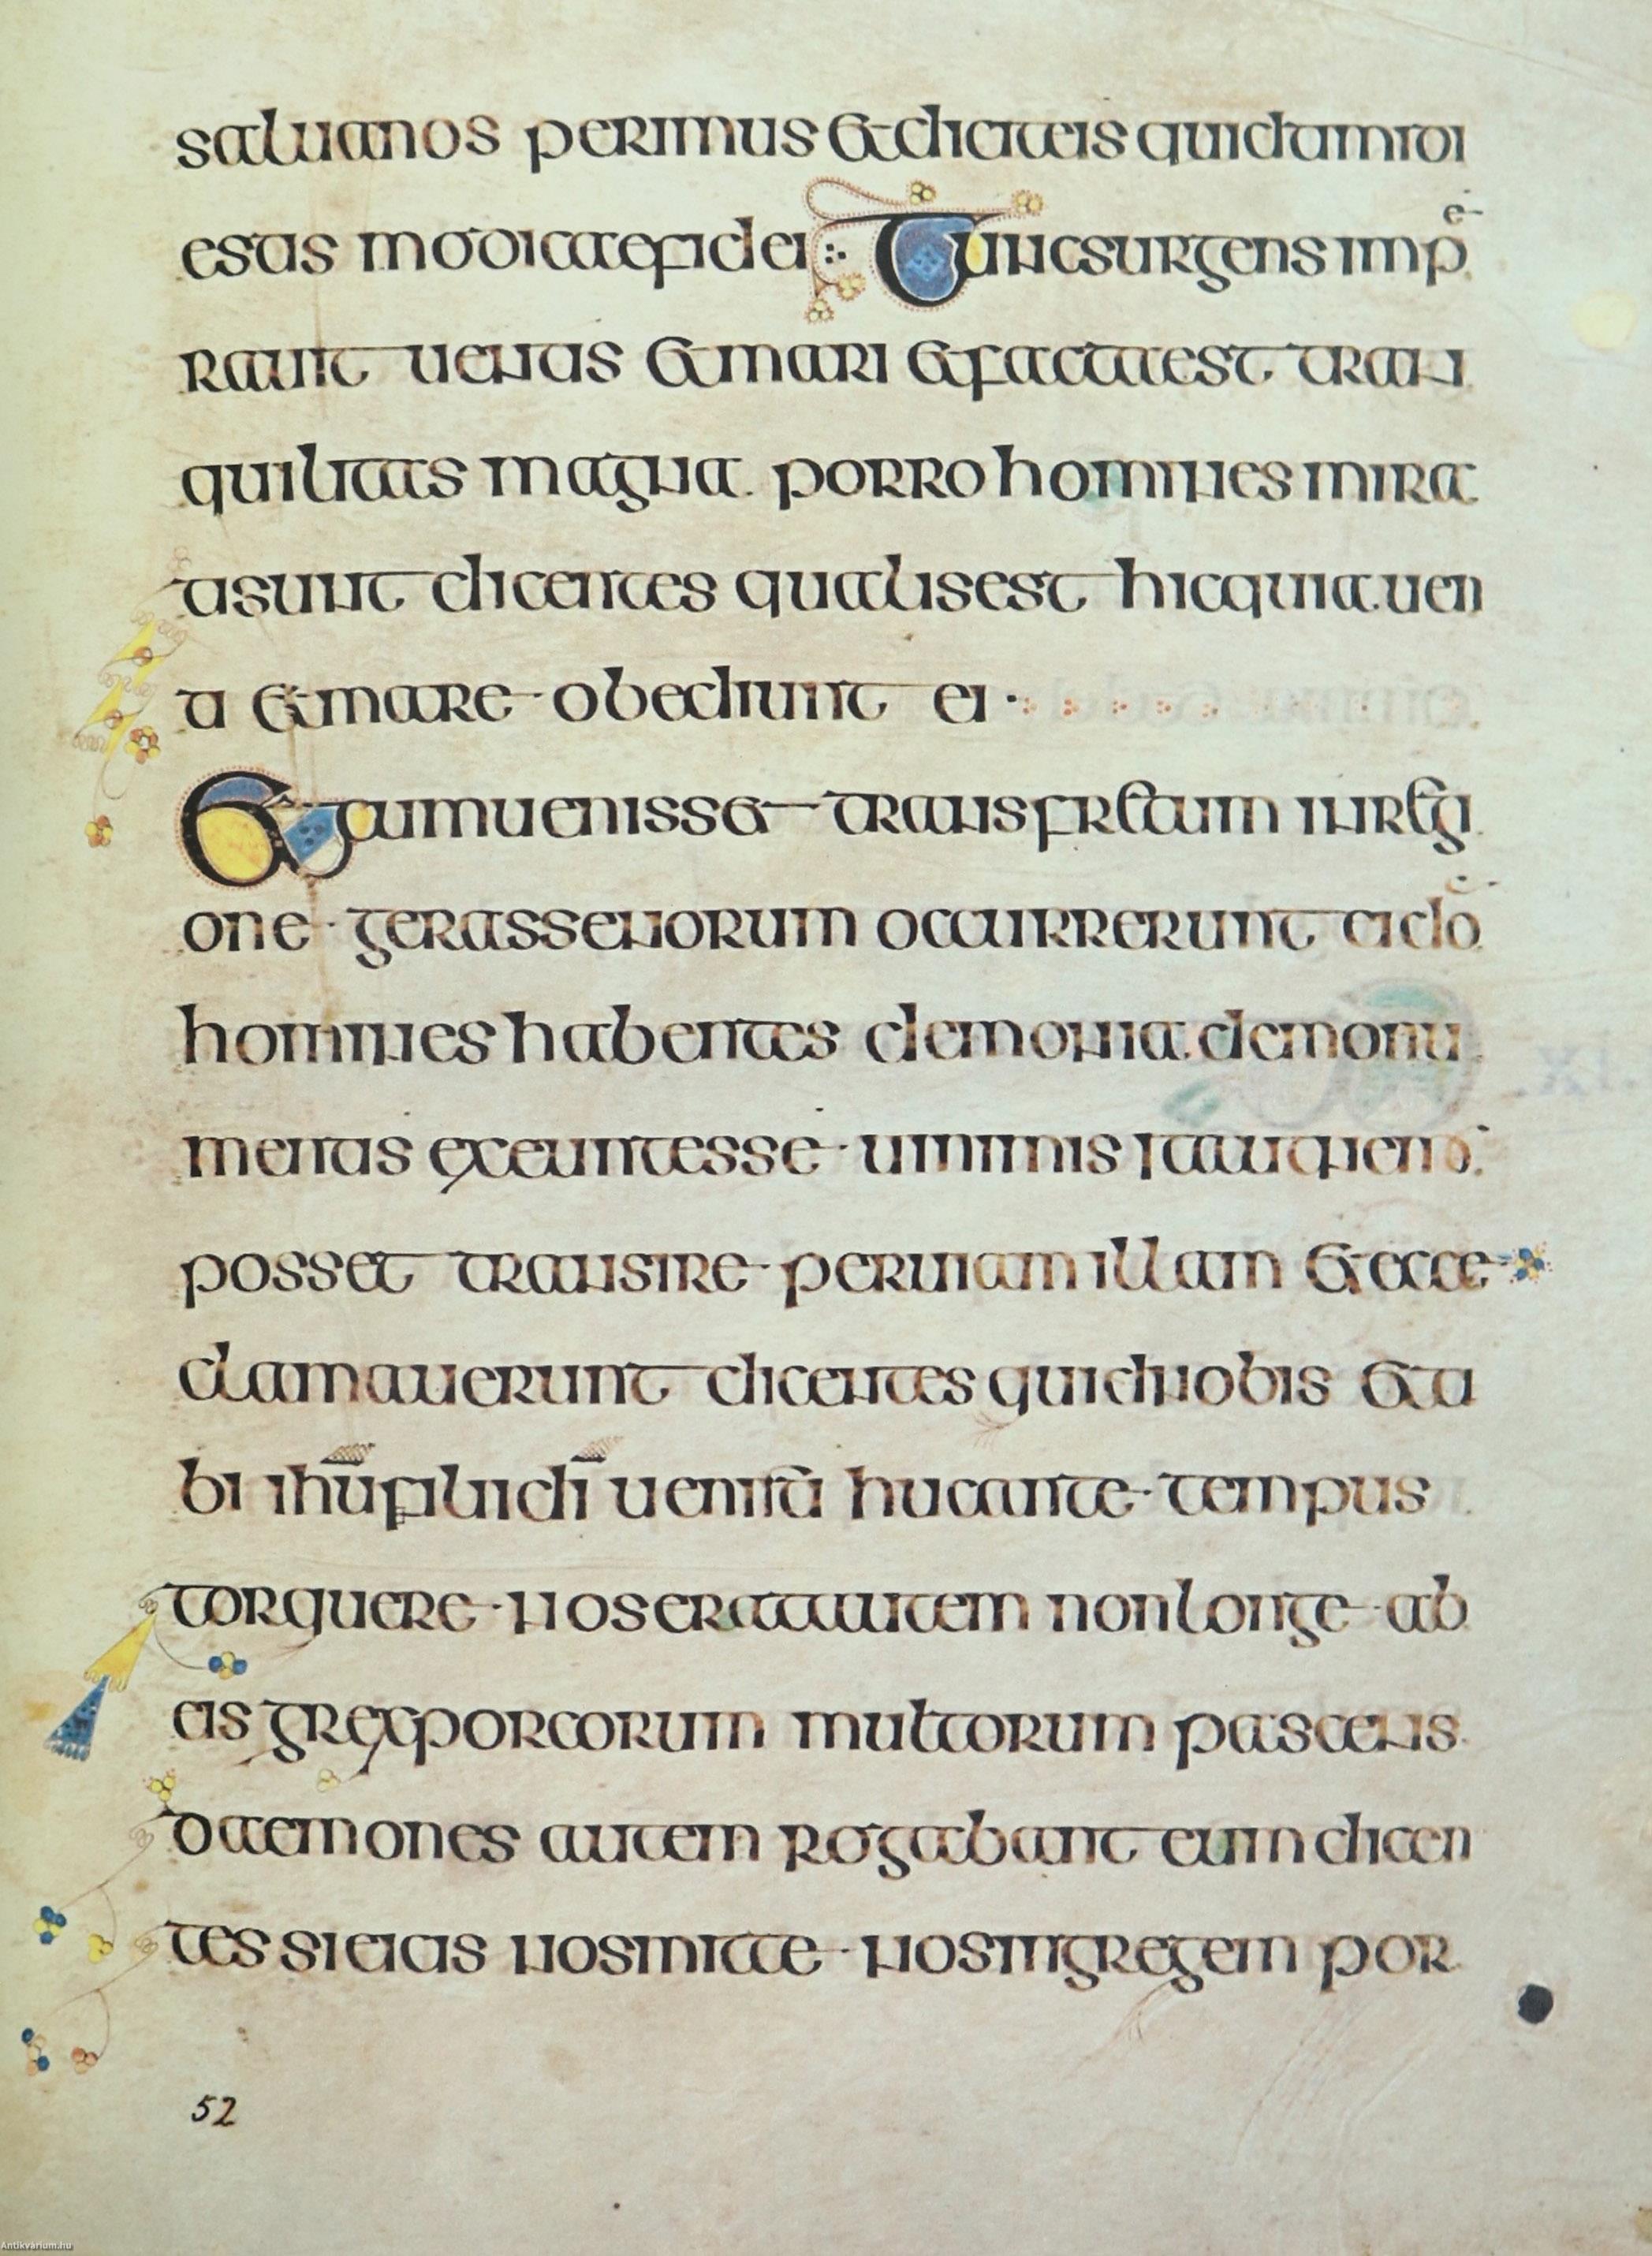 salua nos perimus et dicit eis quid timidi
estis modicae fidei Tunc surgens imp̄e
rauit uentis et mari et facta est tran
quilitas magna porro homines mira
ti sunt dicentes qualis est hic quia uen
ti et mare obediunt ei
Et cum uenisset trans fretum in regi
one gerassenorum occurrerunt ei duo
homines habentes demonia de monu
mentis exeuntes se uiniminis ita ut nemo
posset transire per uiam illam et ecce
clamauerunt dicentes quid nobis et ti
bi ihū fili dī uenisti huc ante tempus
torquere nos erat autem non longe ab
eis grex porcorum multorum pascens
daemones autem rogabant eum dicen
tes si eicis nos mitte nos in gregem por
52
Antikvarium.hu